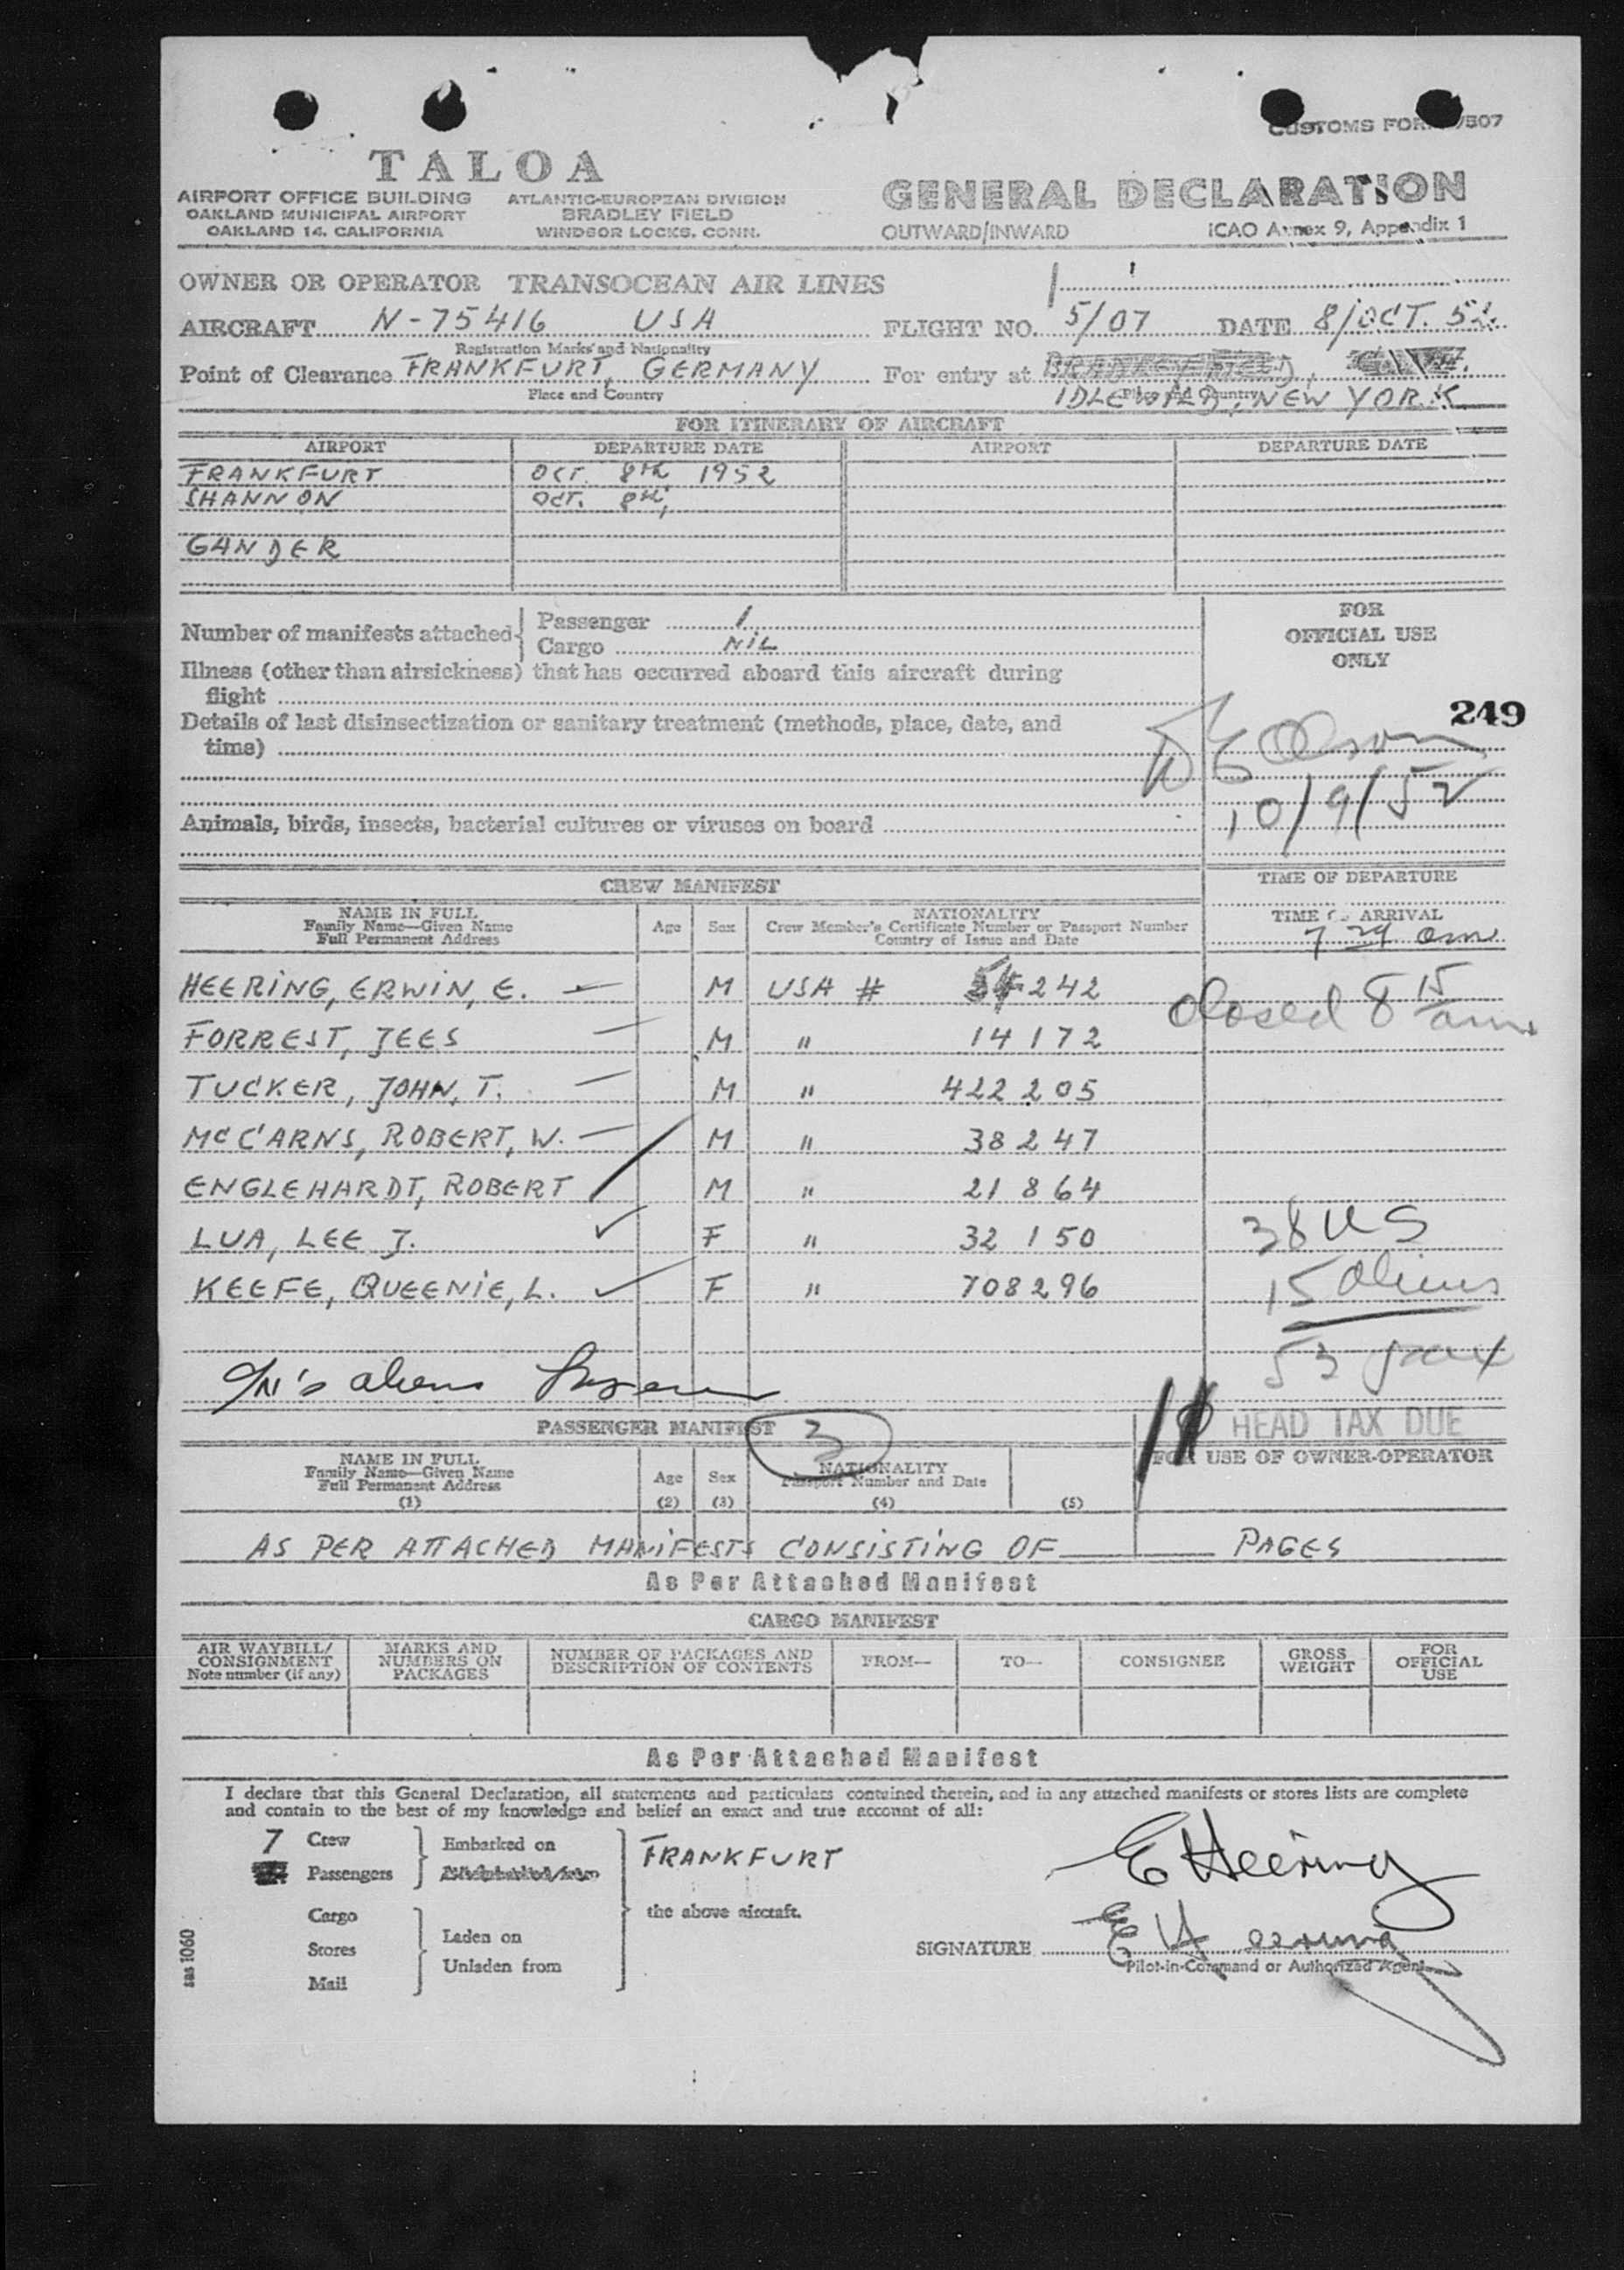 CUSTOMS FOR 7507
TALOA
AIRPORT OFFICE BUILDING
OAKLAND MUNICIPAL AIRPORT
OAKLAND 14, CALIFORNIA
ATLANTIC-EUROPEAN DIVISION
BRADLEY FIELD
WINDSOR LOCKS, CONN.
GENERAL DECLARATION
OUTWARD/INWARD ICAO Annex 9, Appendix 1
OWNER OR OPERATOR TRANSOCEAN AIR LINES
AIRCRAFT N-75416 USA FLIGHT NO. 5/07 DATE 8/OCT. 52
Registration Marks and Nationality
Point of Clearance FRANKFURT, GERMANY For entry at BRADLEY FIELD, CONN.
Place and Country Place and Country
IDLEWILD, NEW YORK
FOR ITINERARY OF AIRCRAFT
AIRPORT DEPARTURE DATE AIRPORT DEPARTURE DATE
FRANKFURT OCT. 8th 1952
SHANNON OCT. 8th,
GANDER
Number of manifests attached Passenger 1
Cargo NIL
FOR
OFFICIAL USE
ONLY
Illness (other than airsickness) that has occurred aboard this aircraft during
flight
249
Details of last disinsectization or sanitary treatment (methods, place, date, and
time)
Olson
10/9/52
Animals, birds, insects, bacterial cultures or viruses on board
CREW MANIFEST TIME OF DEPARTURE
NAME IN FULL
Family Name—Given Name
Full Permanent Address
Age Sex
NATIONALITY
Crew Member's Certificate Number or Passport Number
Country of Issue and Date
TIME OF ARRIVAL
7 29 am
HEERING, ERWIN, E. M USA # 242
closed 8 15 am
FORREST, JEES M " 14172
TUCKER, JOHN, T. M " 422205
McCARNS, ROBERT, W. M " 38247
ENGLEHARDT, ROBERT M " 21864
LUA, LEE J. F " 32150
38 US
KEEFE, QUEENIE, L. F " 708296
15 aliens
53 pax
aliens
PASSENGER MANIFEST 3 HEAD TAX DUE
FOR USE OF OWNER-OPERATOR
NAME IN FULL
Family Name—Given Name
Full Permanent Address
(1)
Age
(2)
Sex
(3)
NATIONALITY
Passport Number and Date
(4)
(5)
AS PER ATTACHED MANIFESTS CONSISTING OF PAGES
As Per Attached Manifest
CARGO MANIFEST
AIR WAYBILL/
CONSIGNMENT
Note number (if any)
MARKS AND
NUMBERS ON
PACKAGES
NUMBER OF PACKAGES AND
DESCRIPTION OF CONTENTS
FROM— TO— CONSIGNEE
GROSS
WEIGHT
FOR
OFFICIAL
USE
As Per Attached Manifest
I declare that this General Declaration, all statements and particulars contained therein, and in any attached manifests or stores lists are complete
and contain to the best of my knowledge and belief an exact and true account of all:
7 Crew
Passengers
Embarked on
FRANKFURT
E Heering
Cargo
Stores
Mail
Laden on
Unladen from
the above aircraft.
SIGNATURE E Heering
Pilot-in-Command or Authorized Agent
sas 1060